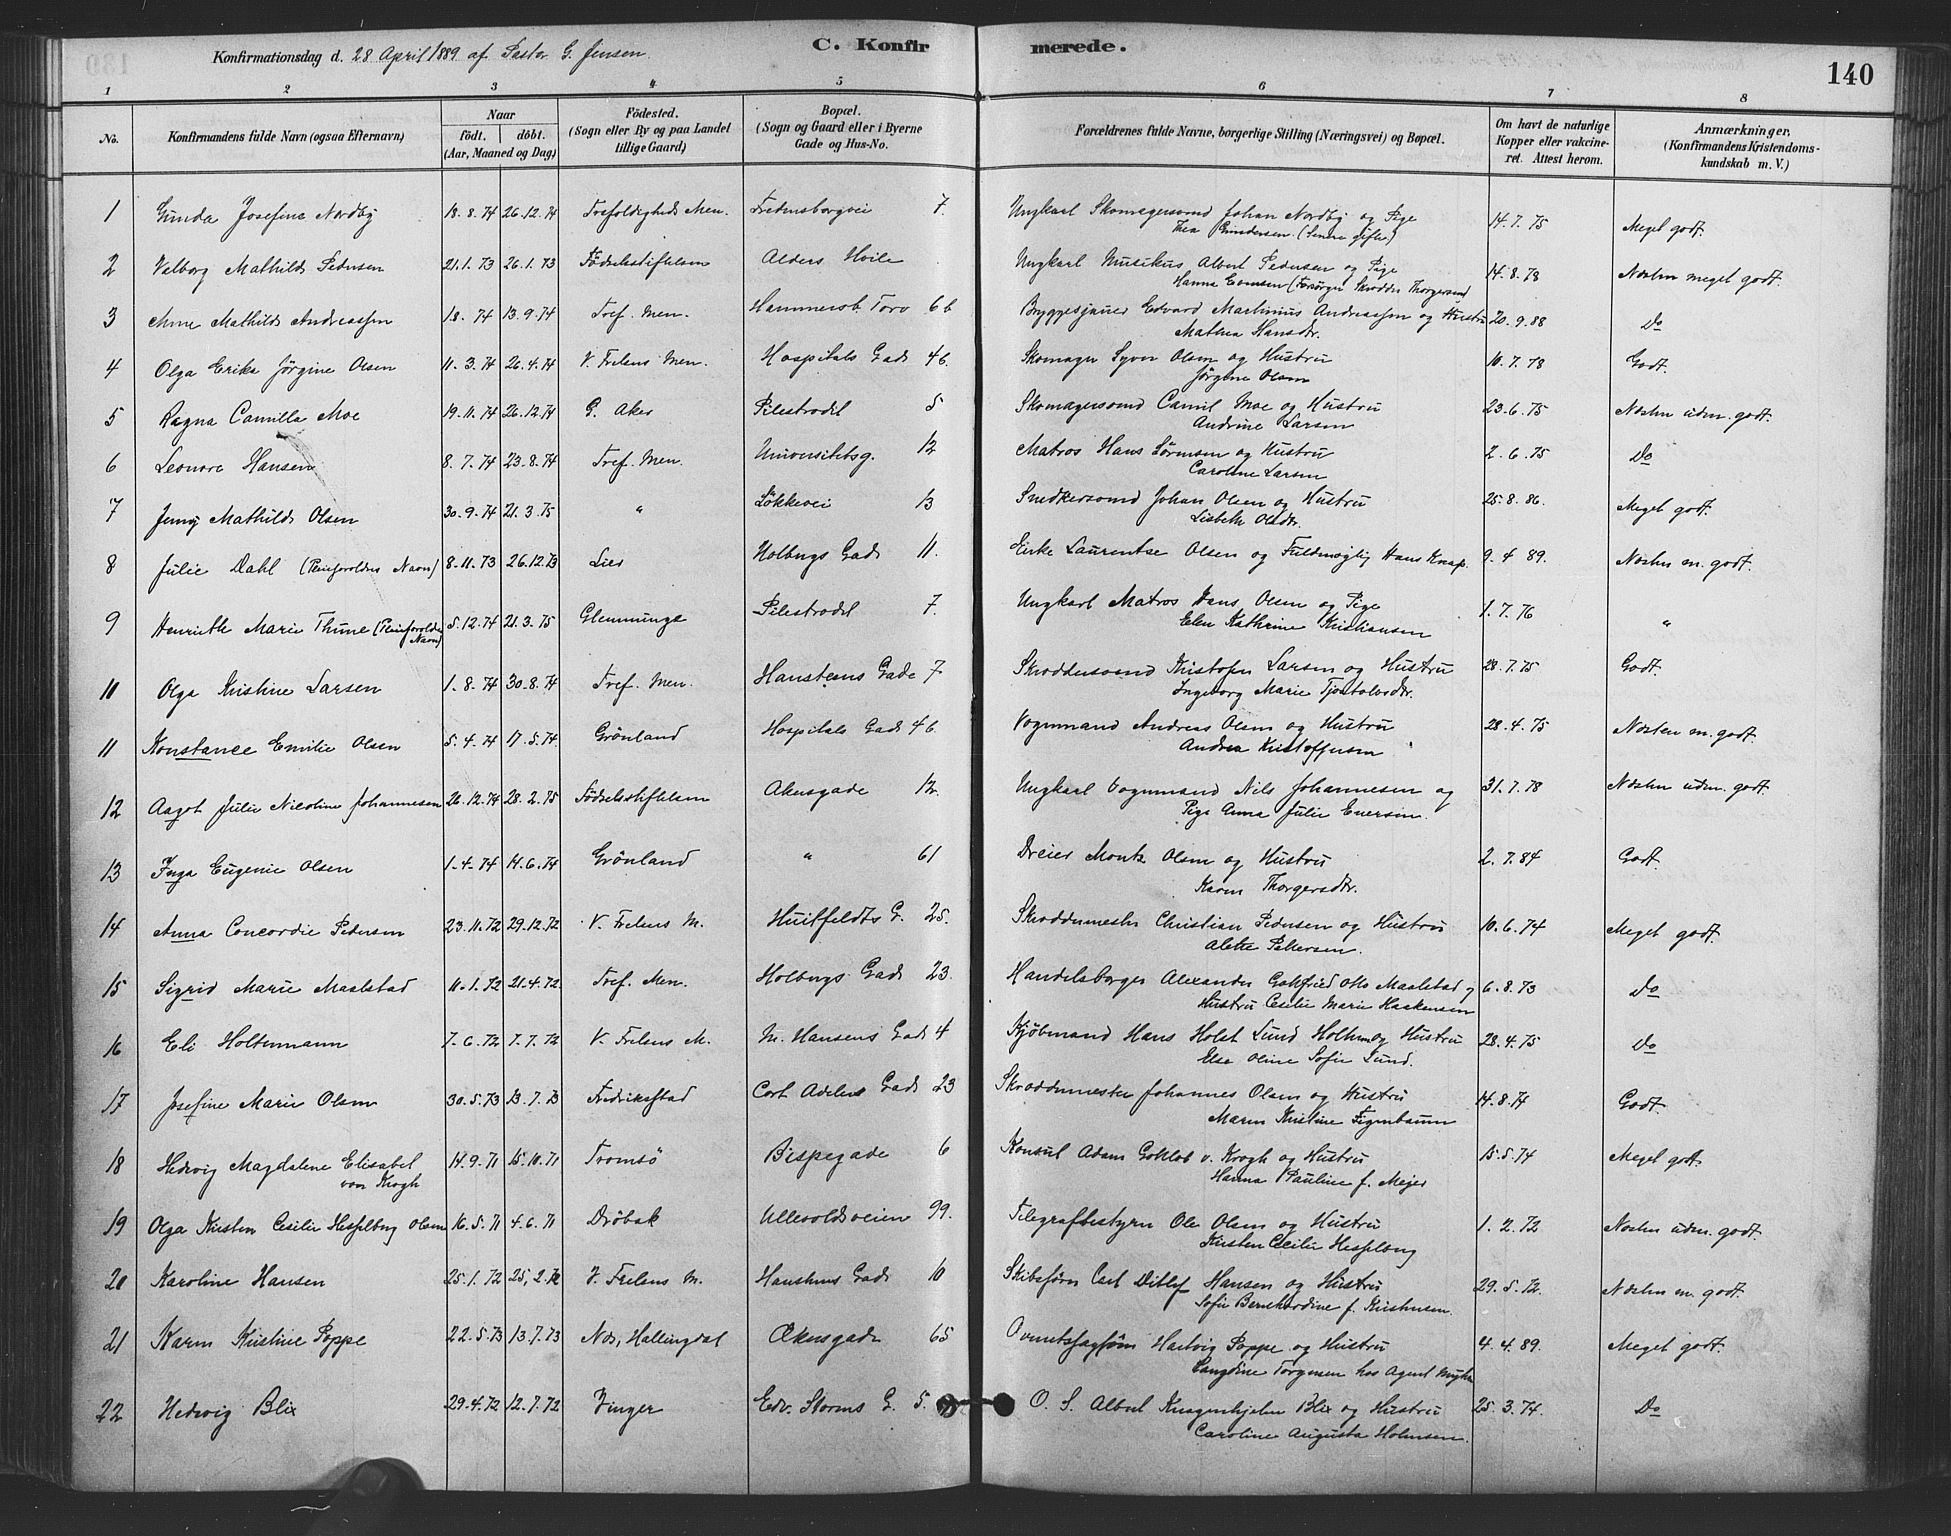 Konfirmationsdag d. 28 April 1889 af Pastor G. Jensen.
C. Konfirmerede.
140
1 2 3 4 5 6 7 8
No.
Konfirmandens fulde Navn (ogsaa Efternavn)
Naar
födt. döbt.
(Aar, Maaned og Dag)
Födested.
(Sogn eller By og paa Landet
tillige Gaard)
Bopæl.
(Sogn og Gaard eller i Byerne
Gade og Hus-No.
Forældrenes fulde Navne, borgerlige Stilling (Næringsvei) og Bopæl.
Om havt de naturlige
Kopper eller vakcine-
ret. Attest herom.
Anmærkninger,
(Konfirmandens Kristendoms-
kundskab m. V.)
1 Gunda Josefine Nordby 18.8.74 26.12.74 Trefoldigheds Men. Fredensborgvei 7. Ungkarl Skomagersvend Johan Nordby og Pige 14.7.75 Meget godt.
Thea Gundersen. (Senere gifte)
2 Valborg Mathilde Pedersen 21.1.73 26.1.73 Födselsstiftelsen Alders Hvile Ungkarl Musikus Albert Pedersen og Pige 14.8.78 Næsten meget godt.
Hanna Evensen (Forsørger Skrædder Thorgersend
3 Anne Mathilde Andreassen 1.8.74 13.9.74 Tref. Men. Hammersb. Torv 6b Byggesjauer Edvard Martinius Andreassen og Hustru 20.9.88 Do
Mathea Hansdtr.
4 Olga Erika Jørgine Olsen 11.3.74 26.4.74 V. Frelsens Men. Hospitals Gade 4b. Skomager Syver Olsen og Hustru 10.7.78 Godt.
Jørgine Olsen
5 Ragna Camilla Moe 19.11.74 26.12.74 G. Aker Pilestrædet 5 Skomagersvend Camil Moe og Hustru 23.6.75 Næsten udm. godt.
Andrine Larsen
6 Leonore Hansen 8.7.74 23.8.74 Tref. Men. Universitetsg. 12 Matros Hans Sörensen og Hustru 2.6.75 Do
Caroline Larsen
7 Jenny Mathilde Olsen 30.9.74 21.3.75 " Løkkevei 13 Snedkersvend Johan Olsen og Hustru 25.8.86. Meget godt.
Lisbeth Olsdtr.
8 Julie Dahl (Pleieforældres Navn) 8.11.73 26.12.73 Lier Holbergs Gade 11. Enke Laurentse Olsen og Fuldmægtig Hans Knap. 9.4.89. Næsten m. godt.
9 Henriette Marie Thune (Pleieforældres 5.12.74 21.3.75 Glemminge Pilestrædet 7. Ungkarl Matros Hans Olsen og Pige 1.7.76 "
Navn) Elen Kathrine Kristiansen
10 Olga Kristine Larsen 1.8.74 30.8.74 Tref. Men. Hansteens Gade 7 Skræddersvend Kristofer Larsen og Hustru 28.7.75 Godt.
Ingeborg Marie Tjostolvsdtr.
11 Konstance Emilie Olsen 5.4.74 17.5.74. Grönland Hospitals Gade 4b. Vognmand Andreas Olsen og Hustru 28.4.75 Næsten m. godt.
Andrea Kristoffersen
12 Aagot Julie Nicoline Johannesen 26.12.74 28.2.75 Födselsstiftelsen Akersgade 12. Ungkarl Vognmand Nils Johannesen og 31.7.78 Næsten udm. godt.
Pige Anna Julie Eversen.
13 Inga Eugenie Olsen 1.4.74 14.6.74 Grönland " 61 Dreier Montz Olsen og Hustru 2.7.84 Godt.
Karen Thorgersdtr.
14 Anna Concordie Pedersen 23.11.72 29.12.72 V. Frelsens M. Huitfeldts G. 25. Skræddermester Christian Pedersen og Hustru 10.6.74 Meget godt.
Alette Pettersen.
15 Sigrid Marie Maalstad 11.1.72 21.4.72. Tref. Men. Holbergs Gade 23. Handelsborger Alexander Gottfried Otto Maalstad og 6.8.73 Do
Hustru Cecilie Marie Haakensen
16 Eli Holtermann 7.6.72 7.7.72 V. Frelsens M. M. Hansens Gade 4 Kjöbmand Hans Holst Lund Holterm. og Hustru 28.4.75 Do
Else Oline Sofie Lund.
17 Josefine Marie Olsen 30.5.73 13.7.73 Fredrikstad Cort Adelers Gade 23 Skræddermester Johannes Olsen og Hustru 14.8.74 Godt.
Maren Kristine Figenbaum
18 Hedvig Magdalene Elisabet 14.9.71 15.10.71 Tromsö Bispegade 6 Konsul Adam Gottlob v. Krogh og Hustru 15.5.74 Meget godt.
von Krogh Hanna Pauline f. Mejer
19 Olga Kirsten Cecilie Hesselberg Olsen 16.5.71 4.6.71 Dröbak Ullevoldsveien 99. Telegrafbestyrer Ole Olsen og Hustru 1.2.72 Næsten udm. godt.
Kirsten Cecilie Hesselberg
20 Karoline Hansen 25.1.72 25.2.72 V. Frelsens M. Hansteens Gade 10 Skibsförer Carl Ditlef Hansen og Hustru 29.5.72. Næsten m. godt.
Sofie Bernhardine f. Kristensen.
21 Karen Kristine Poppe 22.5.73 13.7.73 Næs, Hallingdal Akersgade 65 Overretssagförer Hartvig Poppe og Hustru 4.4.89. Meget godt.
Torgersen hos Agent
22 Hedvig Blix 29.4.72 12.7.72 Vinger Edv. Storms G. 5. O. S. Albert Knagenhjelm Blix og Hustru 25.3.74. Do
Caroline Augusta Holmsen.